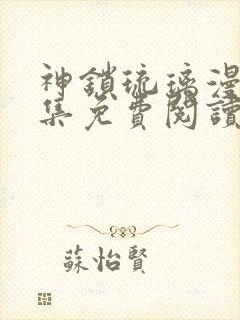 神鎖琉璃漫
集免費閱讀
蘇怡賢